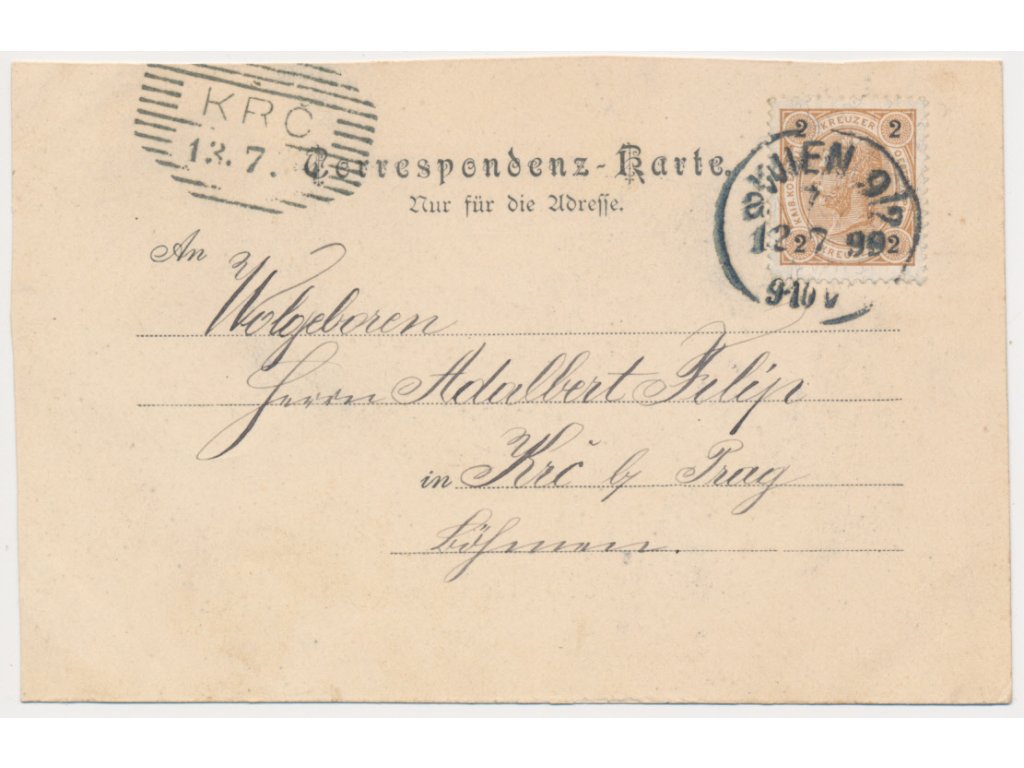 KRČ
13. 7.
Correspondenz-Karte.
Nur für die Adresse.
2 KREUZER 2
WIEN 9/2
12 7 99
2 2
9-10 V
An
Wolgeboren
Herrn Adalbert Filip
in Krč b/ Prag
Böhmen.